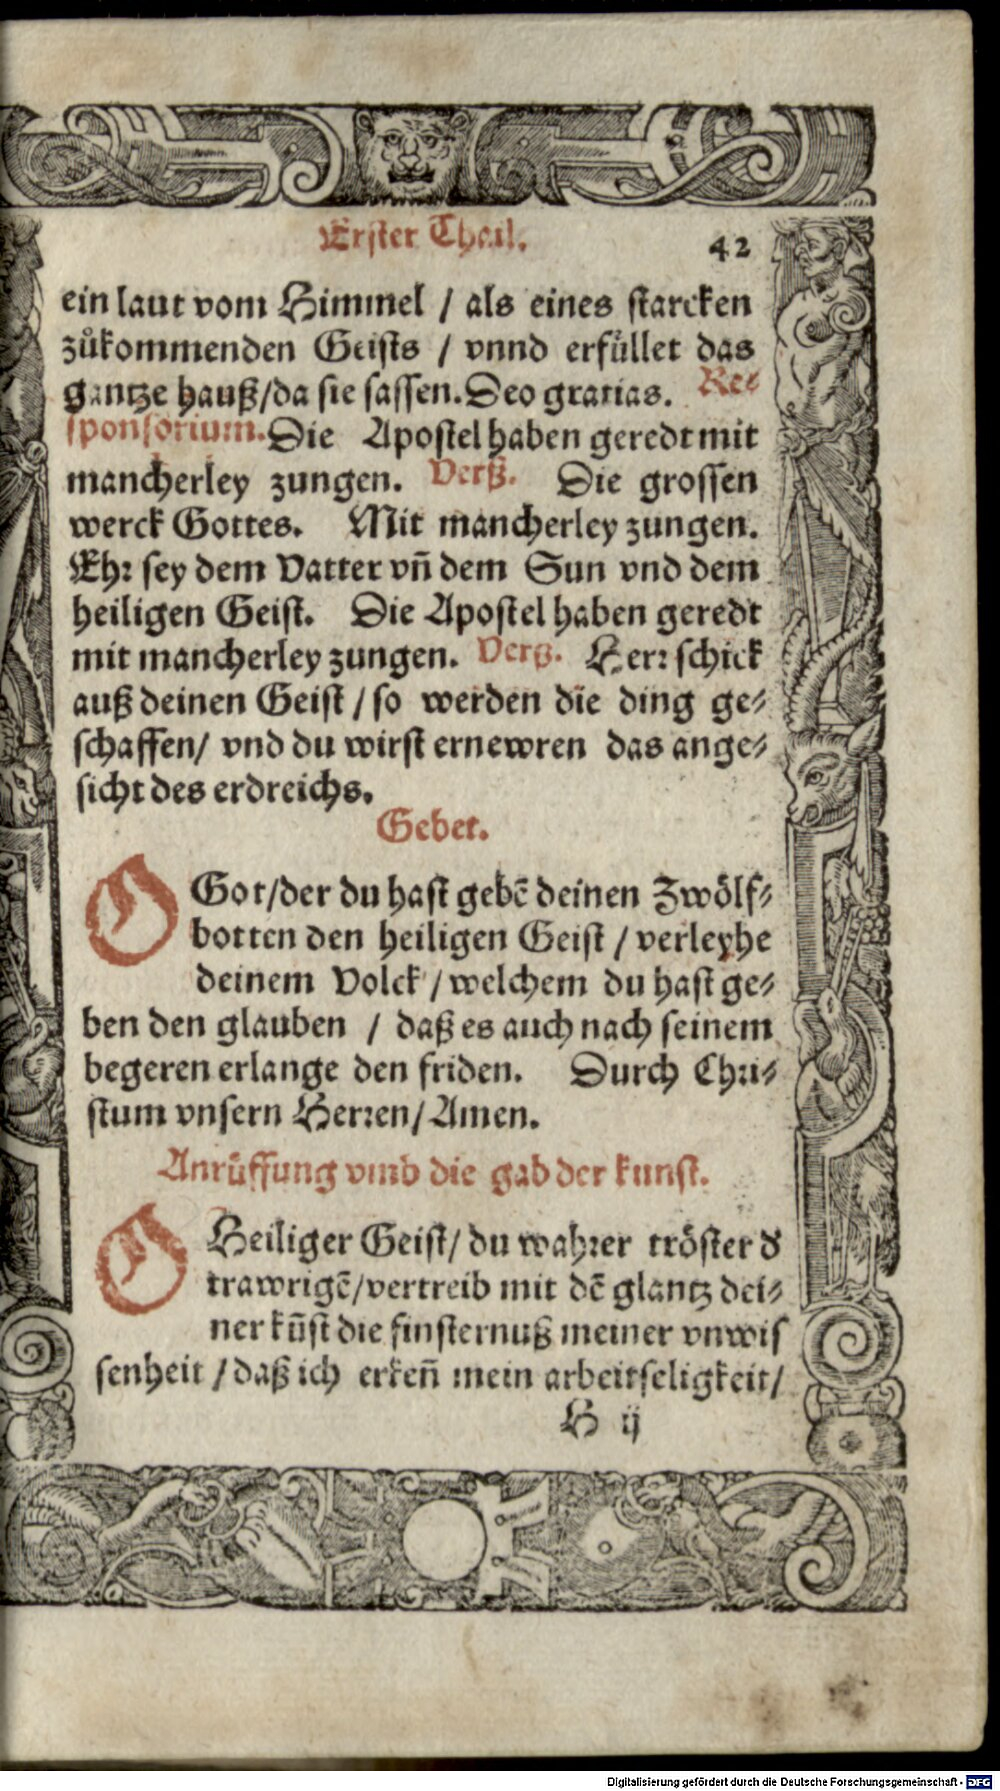 Erster Theil. 42
ein laut vom Himmel / als eines starcken
zůkommenden Geists / vnnd erfüllet das
gantze hauß/da sie sassen. Deo gratias. Re⸗
sponsorium. Die Apostel haben geredt mit
mancherley zungen. Verß. Die grossen
werck Gottes. Mit mancherley zungen.
Ehr sey dem Vatter vñ dem Sun vnd dem
heiligen Geist. Die Apostel haben geredt
mit mancherley zungen. Verß. Herr schick
auß deinen Geist / so werden die ding ge⸗
schaffen/ vnd du wirst ernewren das ange⸗
sicht des erdreichs.
Gebet.
O Got/der du hast gebē deinen Zwölf⸗
botten den heiligen Geist / verleyhe
deinem Volck / welchem du hast ge⸗
ben den glauben / daß es auch nach seinem
begeren erlange den friden. Durch Chri⸗
stum vnsern Herren/ Amen.
Anrüffung vmb die gab der kunst.
O Heiliger Geist/ du wahrer tröster d
trawrigē/vertreib mit dē glantz dei⸗
ner kūst die finsternuß meiner vnwis
senheit / daß ich erkeñ mein arbeitseligkeit/
H ij
Digitalisierung gefördert durch die Deutsche Forschungsgemeinschaft - DFG